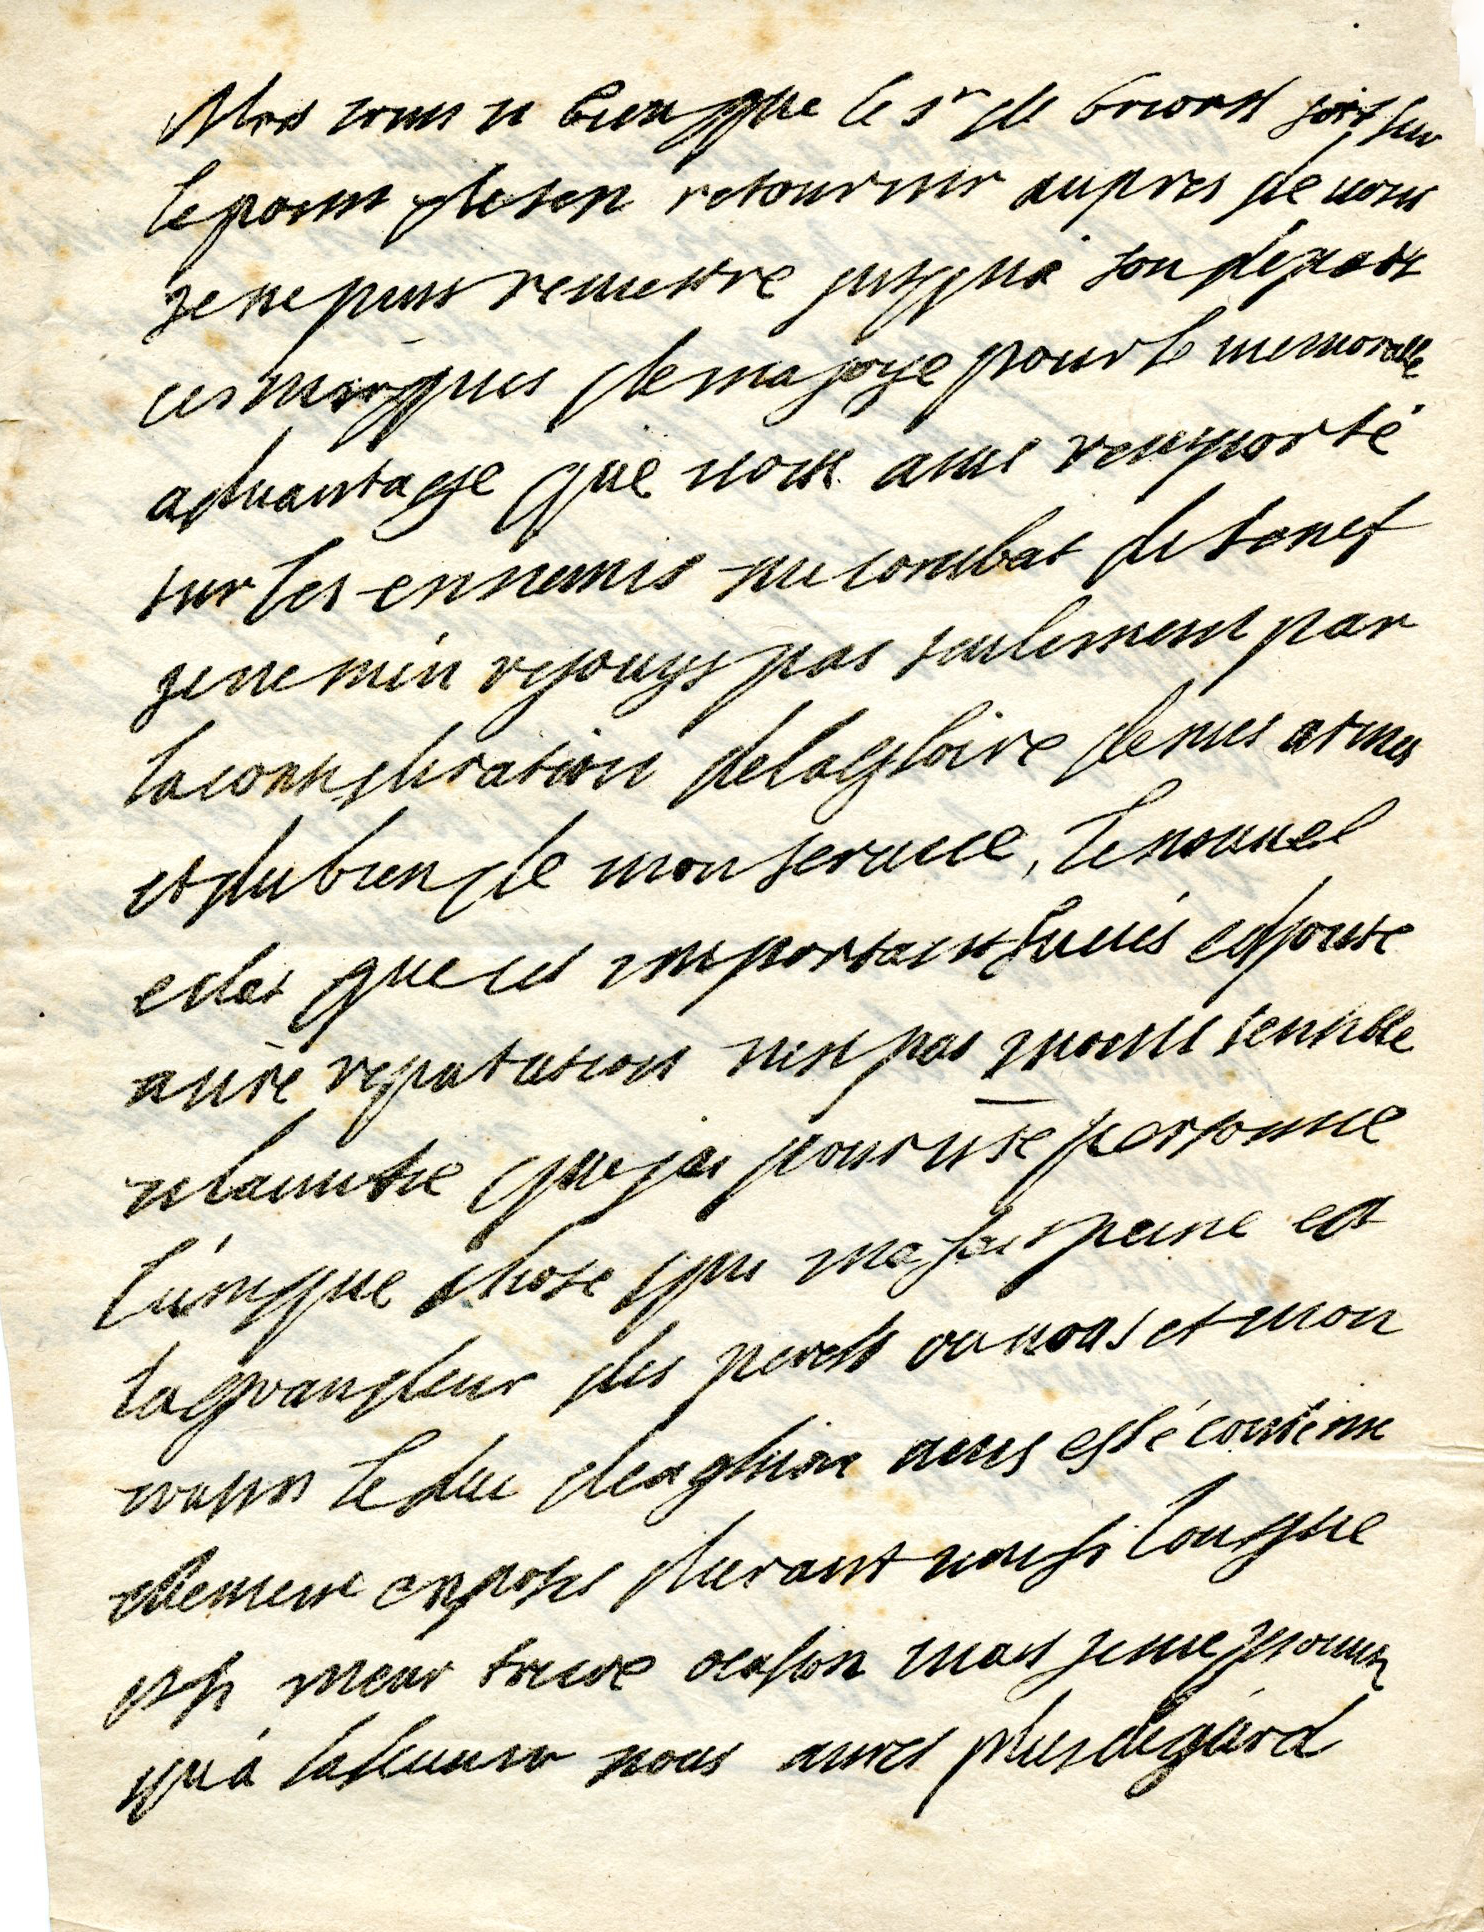 Mon cousin bien que le sr de briord soit sur
le point de sen retourner aupres de vous
je ne puis remettre jusqua son depart
ces marques de ma joye pour le memorable
advantage que vous aves remporté
sur les ennemis au combat de senef
je ne men rejouys pas seulement par
la consideration de la gloire de mes armes
et du bien de mon service, le nouvel
eclat que cet important succés adjouste
a vre reputation nest pas moins sensible
a lamitie que jai pour vre personne
lunique chose qui ma fait peine est
la grandeur des perils ou vous et mon
cousin le duc denghien aves esté continu
ellement exposés durant une si longue
et si meurtriere occasion mais je me promets
qua ladvenir vous aures plus degard